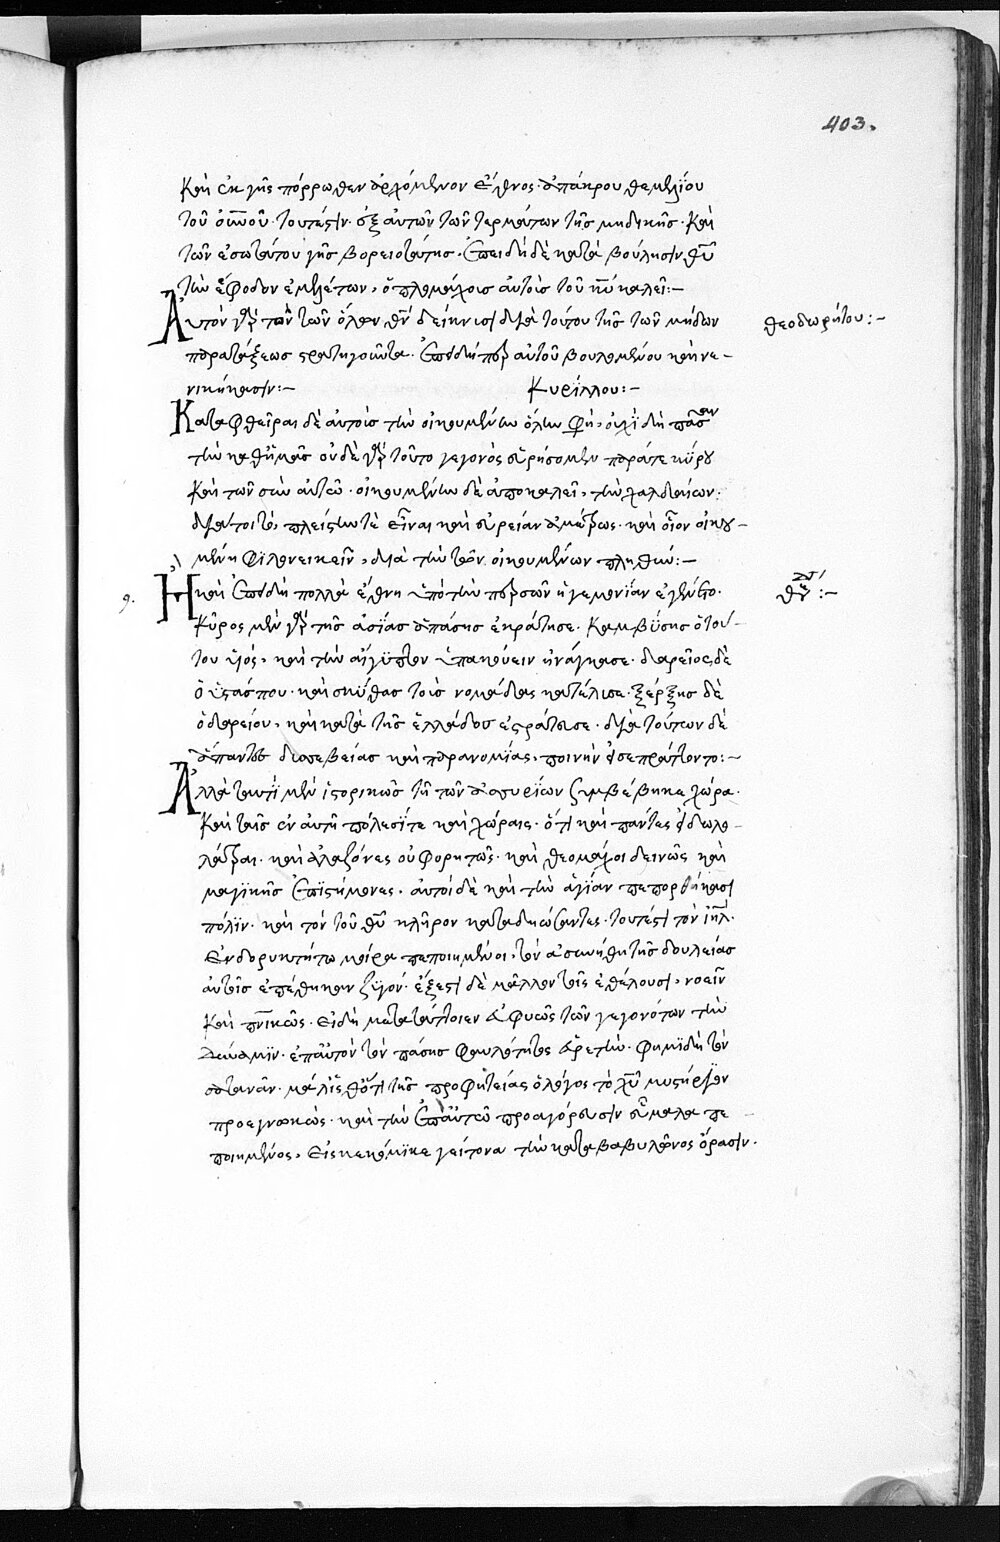 403.
Καὶ ἐκ γῆς πόρρωθεν ἐρχόμενον ἔθνος· ἀπάκρου θεμελίου
τοῦ οὐνοῦ· τουτέστιν· ἐξ αὐτῶν τῶν τερμάτων τῆς μηδικῆς· Καὶ
τῶν ἐσωτάτου γῆς βορειοτάτης· Ἐπειδὴ δὲ κατὰ βούλησιν θῦ
τὴν ἔφοδον ἐμελέτων, ὁπλομάχους αὐτοὺς τοῦ κῦ καλεῖ:–
Αὐτὸν γὰρ τὸν τῶν ὅλων θν δείκνυσι διὰ τούτου τῆς τῶν μήδων
θεοδωρήτου:–
παρατάξεως στρατηγοῦντα· Ἐπειδήπερ αὐτοῦ βουλομένου καὶ νε–
νικήκασιν:– Κυρίλλου:–
Καταφθεῖραι δὲ αὐτοὺς τὴν οἰκουμένην ὅλην φη, οὐχὶ δὴ πᾶσαν
τὴν καθημᾶς οὐδὲ γὰρ τοῦτο γεγονὸς εὑρήσομεν παρά τε κύρου
Καὶ τῶν σὺν αὐτῶ· οἰκουμένην δὲ ἀποκαλεῖ, τὴν χαλδαίων·
διά τοι τὸ, πλείστην τὲ εἶναι καὶ εὐρεῖαν ἀμέτρως· καὶ οἷον οἰκου–
μένη φιλονεικεῖν, διὰ τὴν τῶν οἰκουμένων πληθύν:–
9. Ἢ καὶ Ἐπειδὴ πολλὰ ἔθνη ὑπὸ τὴν περσῶν ἡγεμονίαν ἐγένετο·
Κῦρος μὲν γὰρ τῆς ἀσίας ἁπάσης ἐκράτησε· Καμβύσης ὁ τού–
του ὑιός, καὶ τὴν αἴγυπτον ὑπακούειν ἠνάγκασε· δαρεῖος δὲ
ὁ ὑστάσπου· καὶ σκύθας τοὺς νομάδας κατέλυσε· ξέρξης δὲ
ὁ δαρείου, καὶ κατὰ τῆς ἑλλάδος ἐστράτευσε· διὰ τούτων δὲ
ἅπαντες δυσσεβείας καὶ παρανομίας, ποινὴν εἰσεπράττοντο:–
Ἀλλὰ ταυτὶ μὲν ἱστορικῶς τῆ τῶν ἀσσυρίων ξυμβέβηκε χώρα·
Καὶ ταῖς ἐν αὐτῆ πόλεσί τε καὶ χώραις· ὅτι καὶ πάντες εἰδωλο–
λάτραι· καὶ ἀλαζόνες οὐ φορητῶς· καὶ θεομάχοι δεινῶς καὶ
μαγικῆς Ἐπιστήμονες· αὐτοὶ δὲ καὶ τὴν ἁγίαν πεπορθήκασι
πόλιν· καὶ τὸν τοῦ θῦ κλῆρον καταδηώσαντες· τουτέστι τὸν ιηλ·
Ἐν δορυκτήτω μοίρα πεποιημένοι, τὸν ἀσυνήθη τῆς δουλείας
αὐτοῖς ἐπέθηκαν ζυγόν· ἔξεστι δὲ μᾶλλον τοῖς ἐθέλουσι, νοεῖν
Καὶ πνικῶς· Εἰ δὴ μετατάττοιεν ἀφυῶς τῶν γεγονότων τὴν
δύναμιν· ἐπ αὐτὸν τὸν πάσης φαυλότητος εὑρετὴν· φημὶ δὴ τὸν
σατανᾶν· μάλιστα θ ὅτι τῆς προφητείας ὁ λόγος τὸ χῦ μυστήριον
προεγνωκὼς· καὶ τὴν Ἐπ αὐτῶ προαγόρευσιν εὖ μάλα πε
ποιημένος, Εἰσκεκόμικε γείτονα τὴν κατα βαβυλῶνος ὅρασιν·